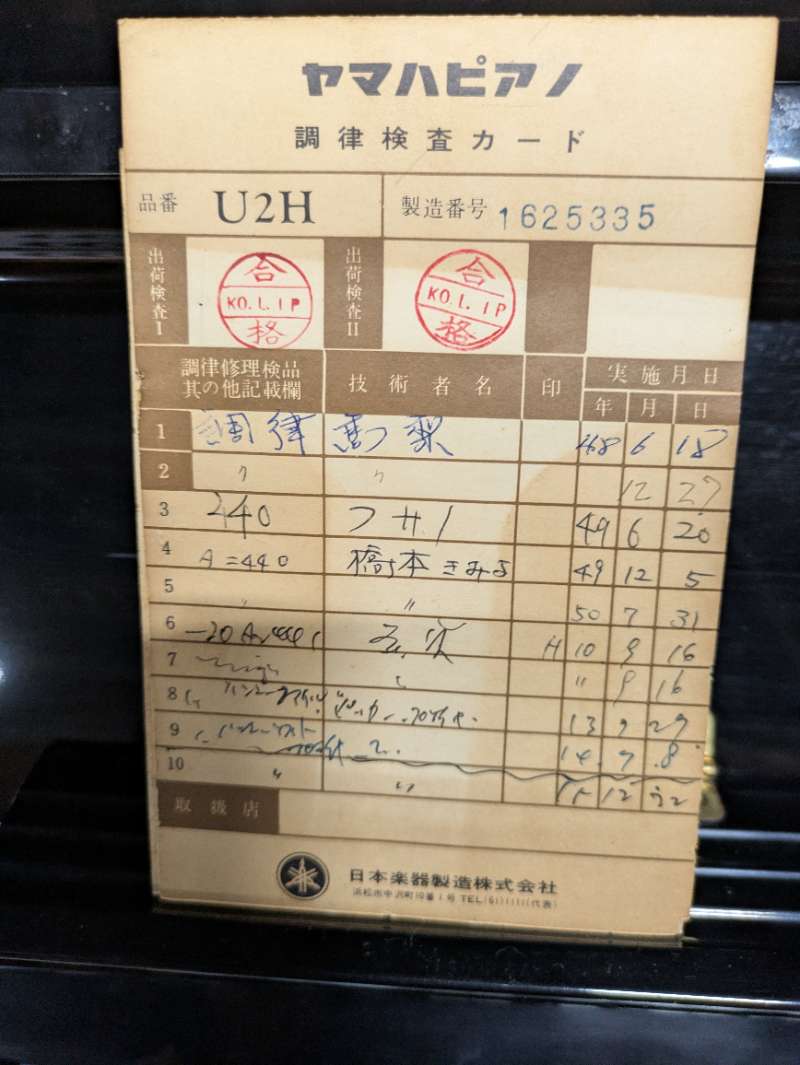 ヤマハピアノ
調律検査カード
品番 U2H 製造番号 1625335
出荷検査I 合 KO.L.IP 格 出荷検査II 合 KO.L.IP 格
調律修理検品其の他記載欄 技術者名 印 実施月日 年 月 日
1 調律 48 6 18
2 〃 〃 12 27
3 440 フサノ 49 6 20
4 A=440 橋本きみよ 49 12 5
5 〃 〃 50 7 31
6 H 10 9 16
7 〃 9 16
8 13 9 29
9 14 9 8
10 〃 〃 15 12
取扱店
日本楽器製造株式会社
浜松市中沢町10番1号 TEL(61)1111(代表)